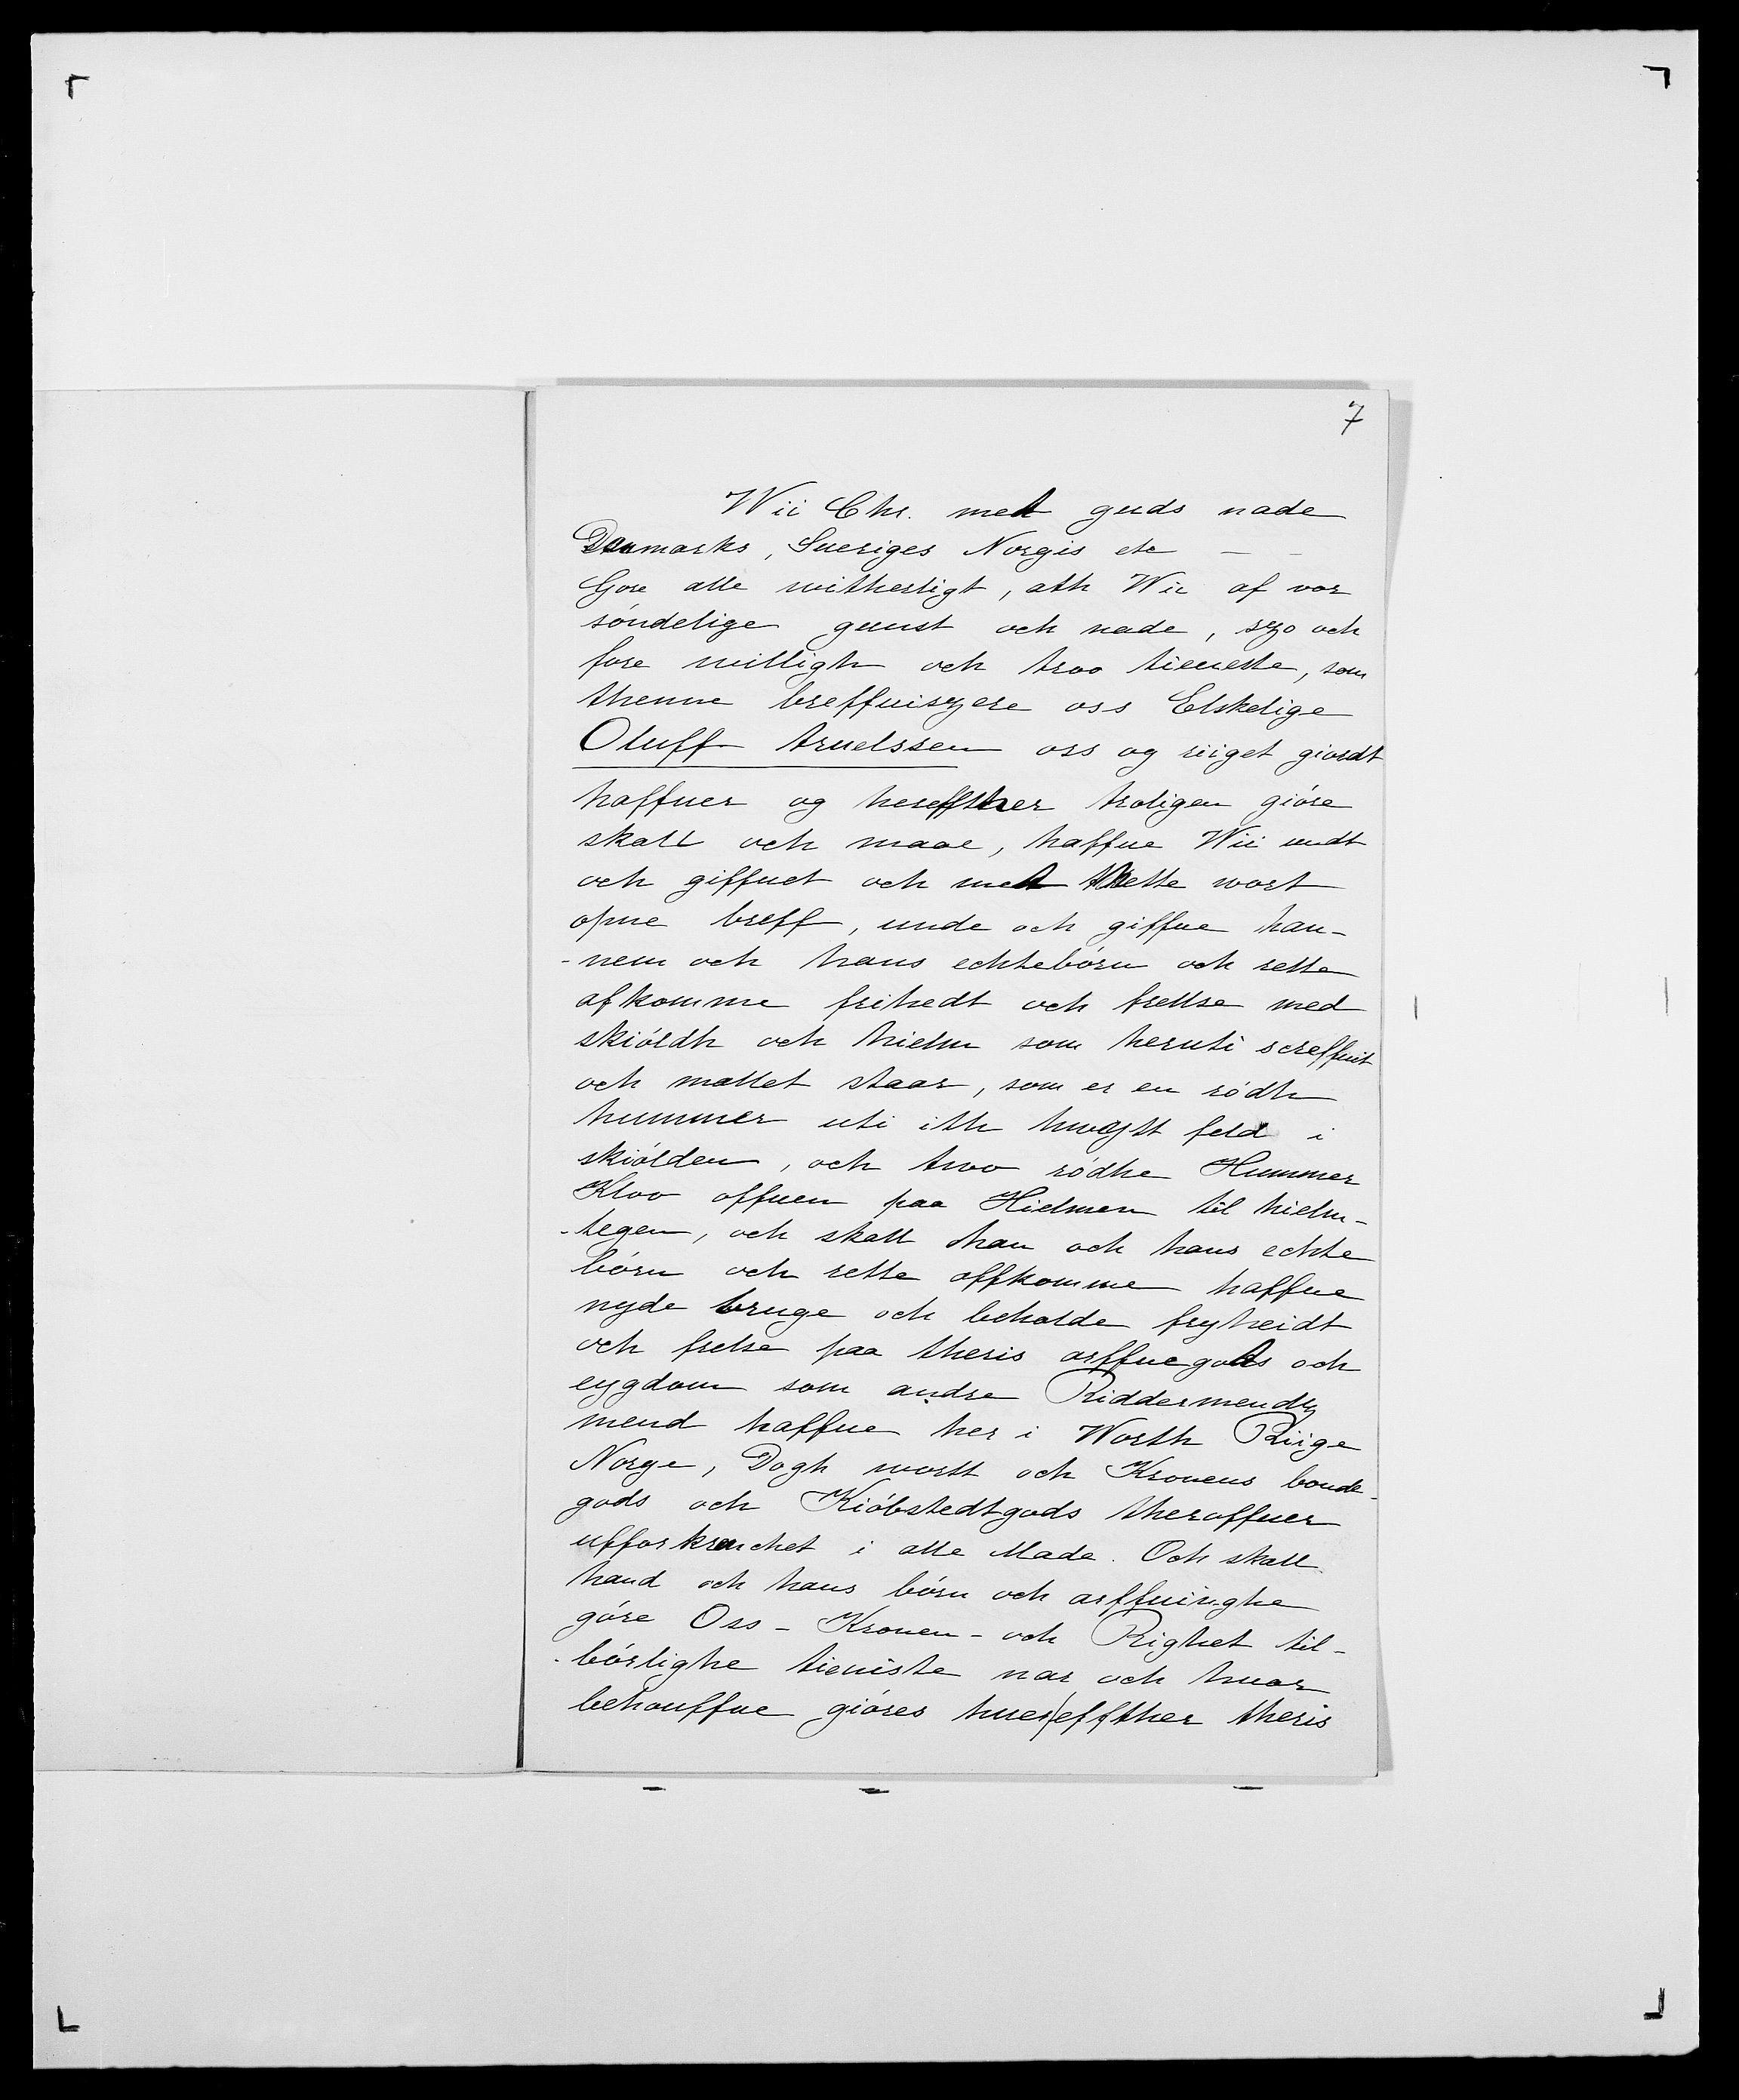 7
Wii Chr. mett guds nade
Danmarks, Sueriges Norgis etc — -
Gøre alle witherligt, ath Wii af vor
søndelige gunst och nade, szo och
fore willigh och troo tieneste, som
thenne breffuiszere oss Elskelige
Oluff truelssen oss og riiget giordt
haffuer og hereffther troligen giøre
skall och maae, haffue Wii undt
och giffuet och mett thette wort
opne breff, unde och giffue han-
-nem och hans echtebørn och rette
afkomme frihedt och frellse med
skiøldh och hielm som heruti screffuit
och mallet staar, som er en rødh
hummer uti ith hwijtt feld i
skiølden, och twoo rødhe Hummer
Kloo offuen paa Hielmen til hielm-
-tegen, och skall han och hans echte
børn och rette affkomme haffue
nyde bruge och beholde fryheidt
och frelse paa theris arffuegods och
eygdom som andre Riddermendtz
mend haffue her i Worth Riige
Norge, Dogh wortt och Kronens bonde-
gods och Kiøbstedtgods theroffuer
ufforkrenchet i alle Made. Och skall
hand och hans børn och arffuinghe
gøre Oss - Kronen - och Righet til-
-børlighe tieniste nar och huor
behouffue giøres huer effther theris